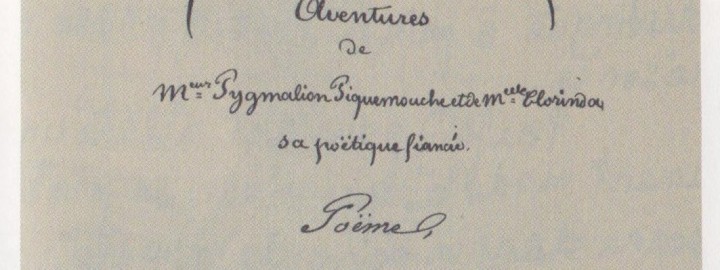 Aventures
de
Meur Pygmalion Piquemouche et de Melle Clorinda,
sa poëtique fiancée.
Poëme,